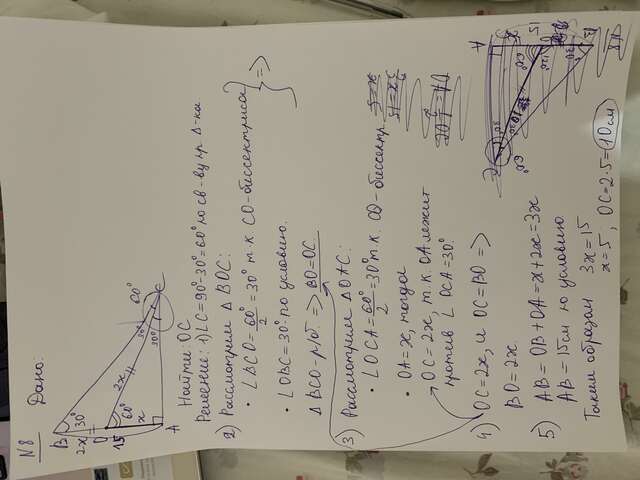 N8
Дано:
B
30°
2x
O
60°
15
x
A
2x
30°
30°
60°
C
Найти: OC
Решение: 1) ∠C=90°-30°=60° по св-ву пр. Δ-ка
2) Рассмотрим ΔBOC:
• ∠BCO=60°/2=30° т.к. CO-биссектриса
• ∠OBC=30° по условию.
} =>
ΔBCO-р/б => BO=OC.
3) Рассмотрим ΔOAC:
• ∠OCA=60°/2=30° т.к. CO-биссектр.
• OA=x, тогда
OC=2x, т.к. OA лежит
против ∠OCA=30°
4) OC=2x, и OC=BO =>
BO=2x
5) AB=OB+OA=x+2x=3x
AB=15см по условию
Таким образом 3x=15
x=5, OC=2·5=10см
A
15
60°
120°
30°
60°